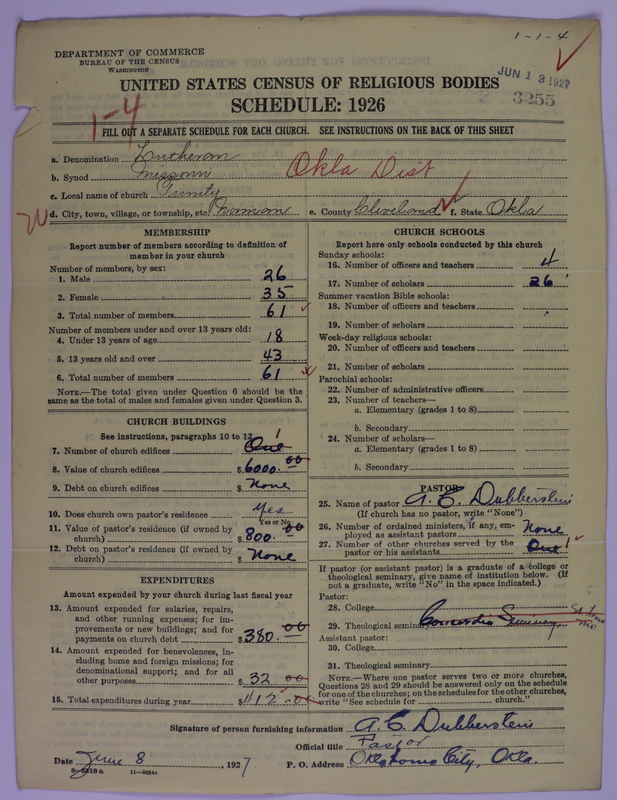 1-1-4
DEPARTMENT OF COMMERCE
BUREAU OF THE CENSUS
WASHINGTON
JUN 13 1927
3255
UNITED STATES CENSUS OF RELIGIOUS BODIES
SCHEDULE: 1926
1-4
FILL OUT A SEPARATE SCHEDULE FOR EACH CHURCH. SEE INSTRUCTIONS ON THE BACK OF THIS SHEET
a. Denomination Lutheran
b. Synod Missouri Okla Dist
c. Local name of church Trinity
d. City, town, village, or township, etc. Norman e. County Cleveland f. State Okla
MEMBERSHIP
Report number of members according to definition of
member in your church
Number of members, by sex:
1. Male 26
2. Female 35
3. Total number of members 61
Number of members under and over 13 years old:
4. Under 13 years of age 18
5. 13 years old and over 43
6. Total number of members 61
NOTE.—The total given under Question 6 should be the
same as the total of males and females given under Question 3.
CHURCH BUILDINGS
See instructions, paragraphs 10 to 12
7. Number of church edifices One 1
8. Value of church edifices $6000.00
9. Debt on church edifices $ None
10. Does church own pastor's residence Yes
Yes or No
11. Value of pastor's residence (if owned by
church) $800.00
12. Debt on pastor's residence (if owned by
church) $ None
EXPENDITURES
Amount expended by your church during last fiscal year
13. Amount expended for salaries, repairs,
and other running expenses; for im-
provements or new buildings; and for
payments on church debt $380.00
14. Amount expended for benevolences, in-
cluding home and foreign missions; for
denominational support; and for all
other purposes $32 00
15. Total expenditures during year $412.00
CHURCH SCHOOLS
Report here only schools conducted by this church
Sunday schools:
16. Number of officers and teachers 4
17. Number of scholars 26
Summer vacation Bible schools:
18. Number of officers and teachers
19. Number of scholars
Week-day religious schools:
20. Number of officers and teachers
21. Number of scholars
Parochial schools:
22. Number of administrative officers
23. Number of teachers—
a. Elementary (grades 1 to 8)
b. Secondary
24. Number of scholars—
a. Elementary (grades 1 to 8)
b. Secondary
PASTOR
25. Name of pastor A. C. Dubberstein
(If church has no pastor, write "None")
26. Number of ordained ministers, if any, em-
ployed as assistant pastors None
27. Number of other churches served by the
pastor or his assistants One 1
If pastor (or assistant pastor) is a graduate of a college or
theological seminary, give name of institution below. (If
not a graduate, write "No" in the space indicated.)
Pastor:
28. College
29. Theological seminary Concordia Seminary
Assistant pastor:
30. College
31. Theological seminary
NOTE.—Where one pastor serves two or more churches,
Questions 28 and 29 should be answered only on the schedule
for one of the churches; on the schedules for the other churches,
write "See schedule for church."
Signature of person furnishing information A. C. Dubberstein
Official title Pastor
Date June 8, 1927 P. O. Address Oklahoma City, Okla.
11—9084